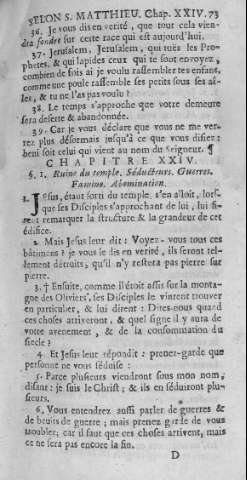 SELON S. MATTHIEU. Chap. XXIV. 73
36. Je vous dis en vérité, que tout cela vien-
dra fondre sur cette race qui est aujourd'hui.
37. Jerusalem, Jerusalem, qui tuës les Pro-
phetes, & qui lapides ceux qui te sont envoyez,
combien de fois ai je voulu rassembler tes enfans,
comme une poule rassemble ses petits sous ses aî-
les, & tu ne l'as pas voulu?
38. Le temps s'approche que votre demeure
sera deserte & abandonnée.
39. Car je vous déclare que vous ne me ver-
rez plus désormais jusqu'à ce que vous disiez:
beni soit celui qui vient au nom du Seigneur. ¶
CHAPITRE XXIV.
§. 1. Ruine du temple. Séducteurs. Guerres.
Famine. Abomination.
1. Jesus, étant sorti du temple, s'en alloit, lors-
que ses Disciples s'approchant de lui, lui fi-
rent remarquer la structure & la grandeur de cet
édifice.
2. Mais Jesus leur dit: Voyez-vous tous ces
bâtimens? je vous le dis en verité, ils seront tel-
lement détruits, qu'il n'y restera pas pierre sur
pierre.
3. † Ensuite, comme il étoit assis sur la monta-
gne des Oliviers, ses Disciples le vinrent trouver
en particulier, & lui dirent: Dites-nous quand
ces choses arriveront, & quel signe il y aura de
votre avenement, & de la consommation du
siecle?
4. Et Jesus leur répondit: prenez-garde que
personne ne vous séduise:
5. Parce plusieurs viendront sous mon nom,
disant: je suis le Christ; & ils en séduiront plu-
sieurs.
6. Vous entendrez aussi parler de guerres &
de bruits de guerre; mais prenez garde de vous
troubler, car il faut que ces choses arrivent, mais
ce ne sera pas encore la fin.
D